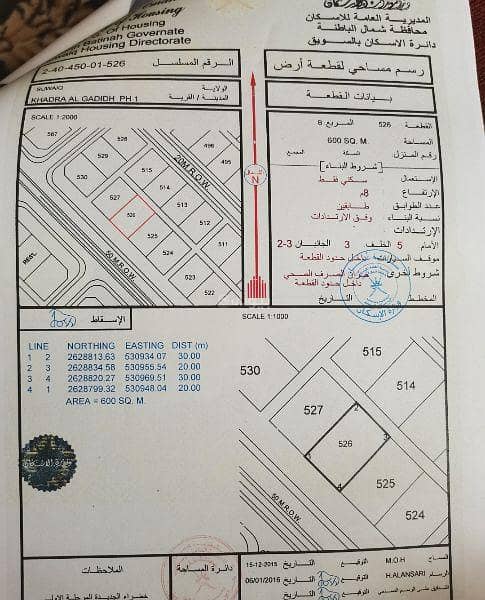 المديرية العامة للاسكان
محافظة شمال الباطنة
دائرة الاسكان بالسويق
Of Housing
Batinah Governate
Housing Directorate
2-40-450-01-526
الرقم المسلسل
رسم مساحي لقطعة أرض
SUWAIQ
الولاية
KHADRA AL GADIDH PH-1
المدينة / القرية
بيانات القطعة
SCALE 1:2000
القطعة 526 المربع 6
المساحة 600 SQ. M.
رقم المنزل السكة المجمع
( شروط البناء )
الاستعمال سكني فقط
الارتفاع 8م
عدد الطوابق طابقين
نسبة البناء وفق الارتدادات
الارتدادات
الأمام 5 الخلف 3 الجانبان 2-3
موقف السيارات داخل حدود القطعة
شروط اخرى الصرف الصحي
داخل حدود القطعة
المخطط التاريخ
وزارة الإسكان
567
529
530
515
498
496
20M.R.O.W.
514
527
513
526
512
525
511
524
523
522
RESI.
50 M.R.O.W.
الشمال
N
الإسقاط
SCALE 1:1000
LINE NORTHING EASTING DIST (m)
1 2 2628813.63 530934.07 30.00
2 3 2628834.58 530955.54 20.00
3 4 2628820.27 530969.51 30.00
4 1 2628799.32 530948.04 20.00
AREA = 600 SQ. M.
530
515
514
527
2
526
3
1
4
525
524
50 M.R.O.W.
الملاحظات
دائرة المساحة
15-12-2015 التاريخ التوقيع M.O.H المساح
06/01/2016 التاريخ التوقيع H.ALANSARI الرسام
خضراء الجديدة المرحلة الاولى